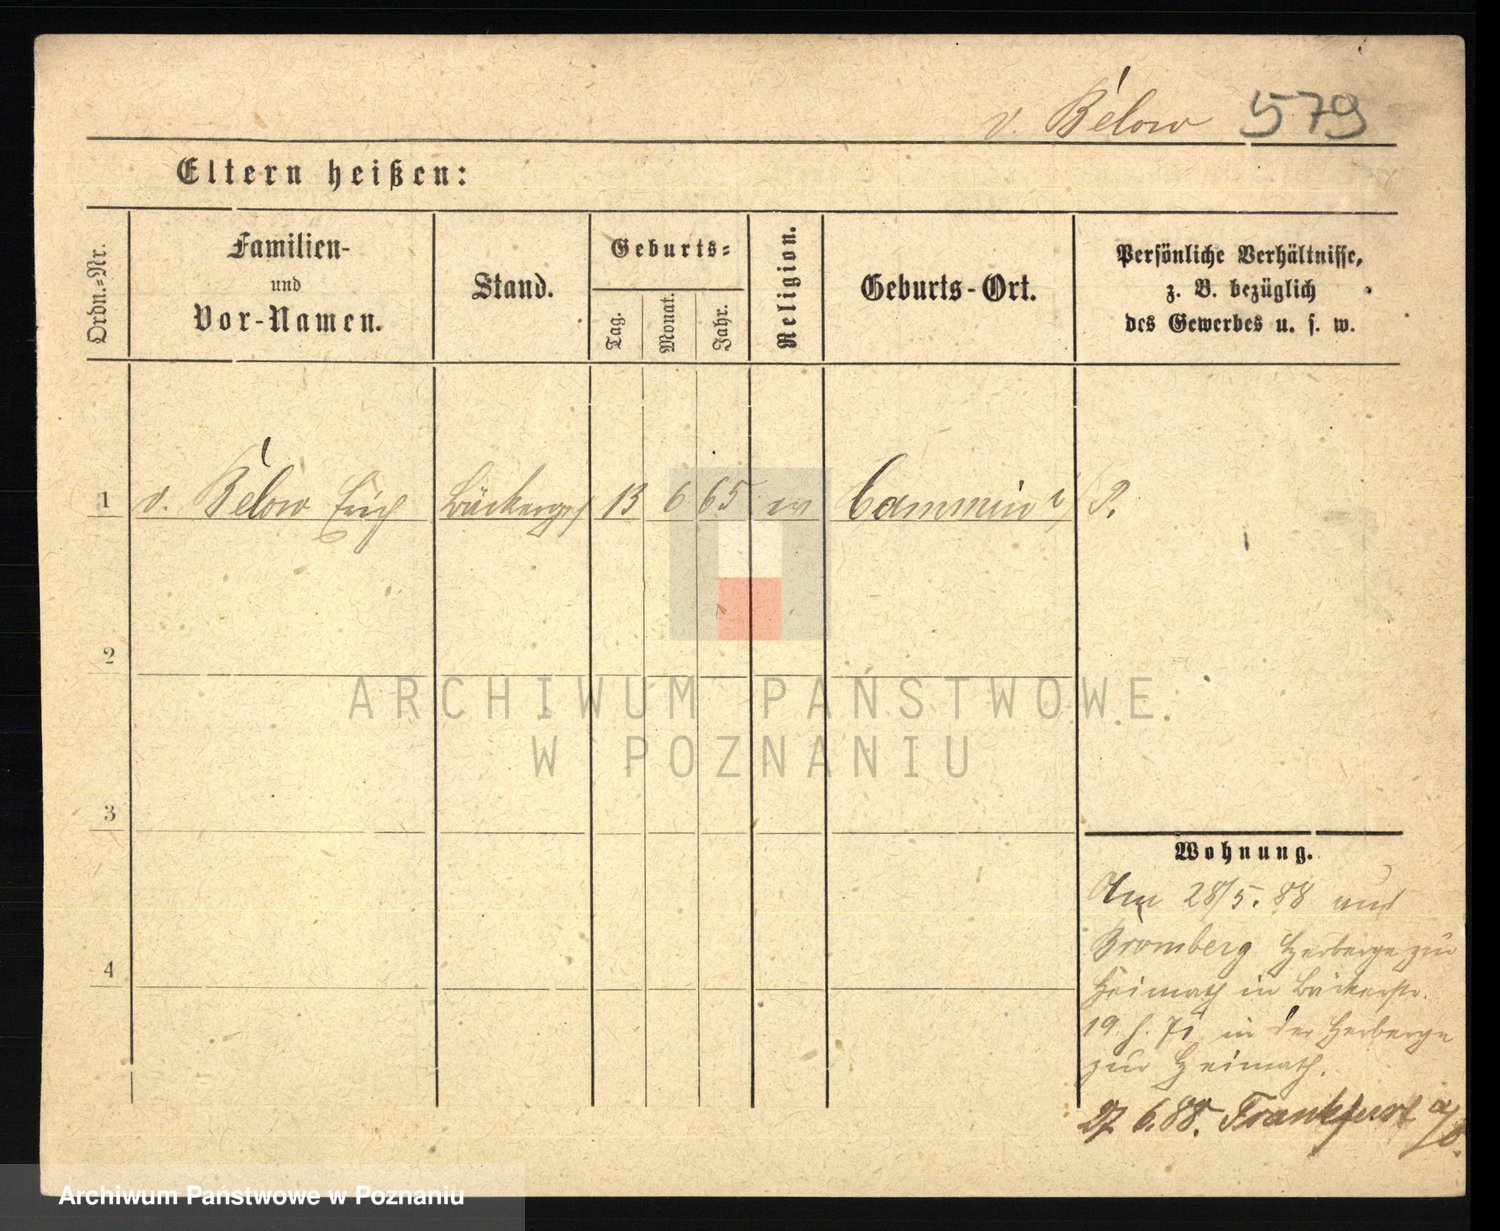 v. Below 579
Eltern heißen:
Ordn.-Nr.
Familien-
und
Vor-Namen.
Stand.
Geburts-
Tag.
Monat.
Jahr.
Religion.
Geburts-Ort.
Persönliche Verhältnisse,
z. B. bezüglich
des Gewerbes u. s. w.
1 v. Below Erich Bäckerges 13 6 65 ev Cammin i/P.
2
ARCHIWUM PAŃSTWOWE
W POZNANIU
3
Wohnung.
Am 28/5. 88 aus
Bromberg Herberge zur
Heimath in Bäckerstr.
19 in der Herberge
zur Heimath.
27 6. 88. Frankfurt a/O.
4
Archiwum Państwowe w Poznaniu